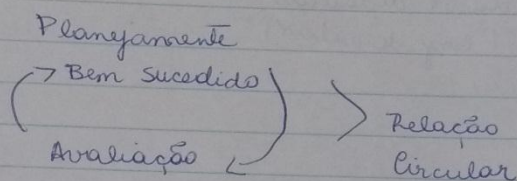 Planejamente
Bem sucedido
Avaliação
Relação
Circular